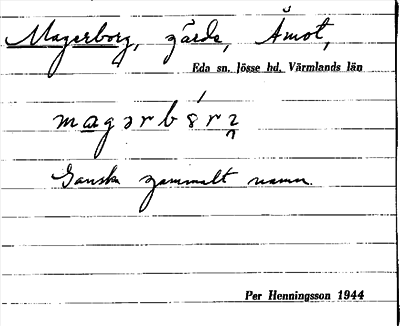 Magerborg, gärde, Åmot,
Eda sn. Jösse hd. Värmlands län
Ganska gammalt namn.
Per Henningsson 1944